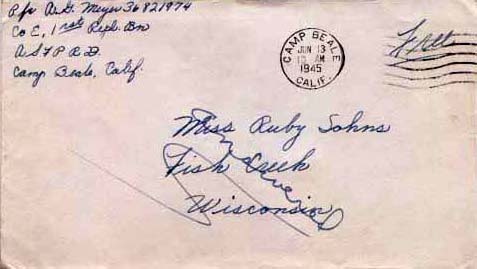 Pfc A.G. Meyer 36821974
Co E, 1rst Repl. Bn
A S F P R D.
Camp Beale, Calif.
CAMP BEALE
JUN 13
10 AM
1945
CALIF.
Free
Miss Ruby Johns
Fish Creek
Wisconsin